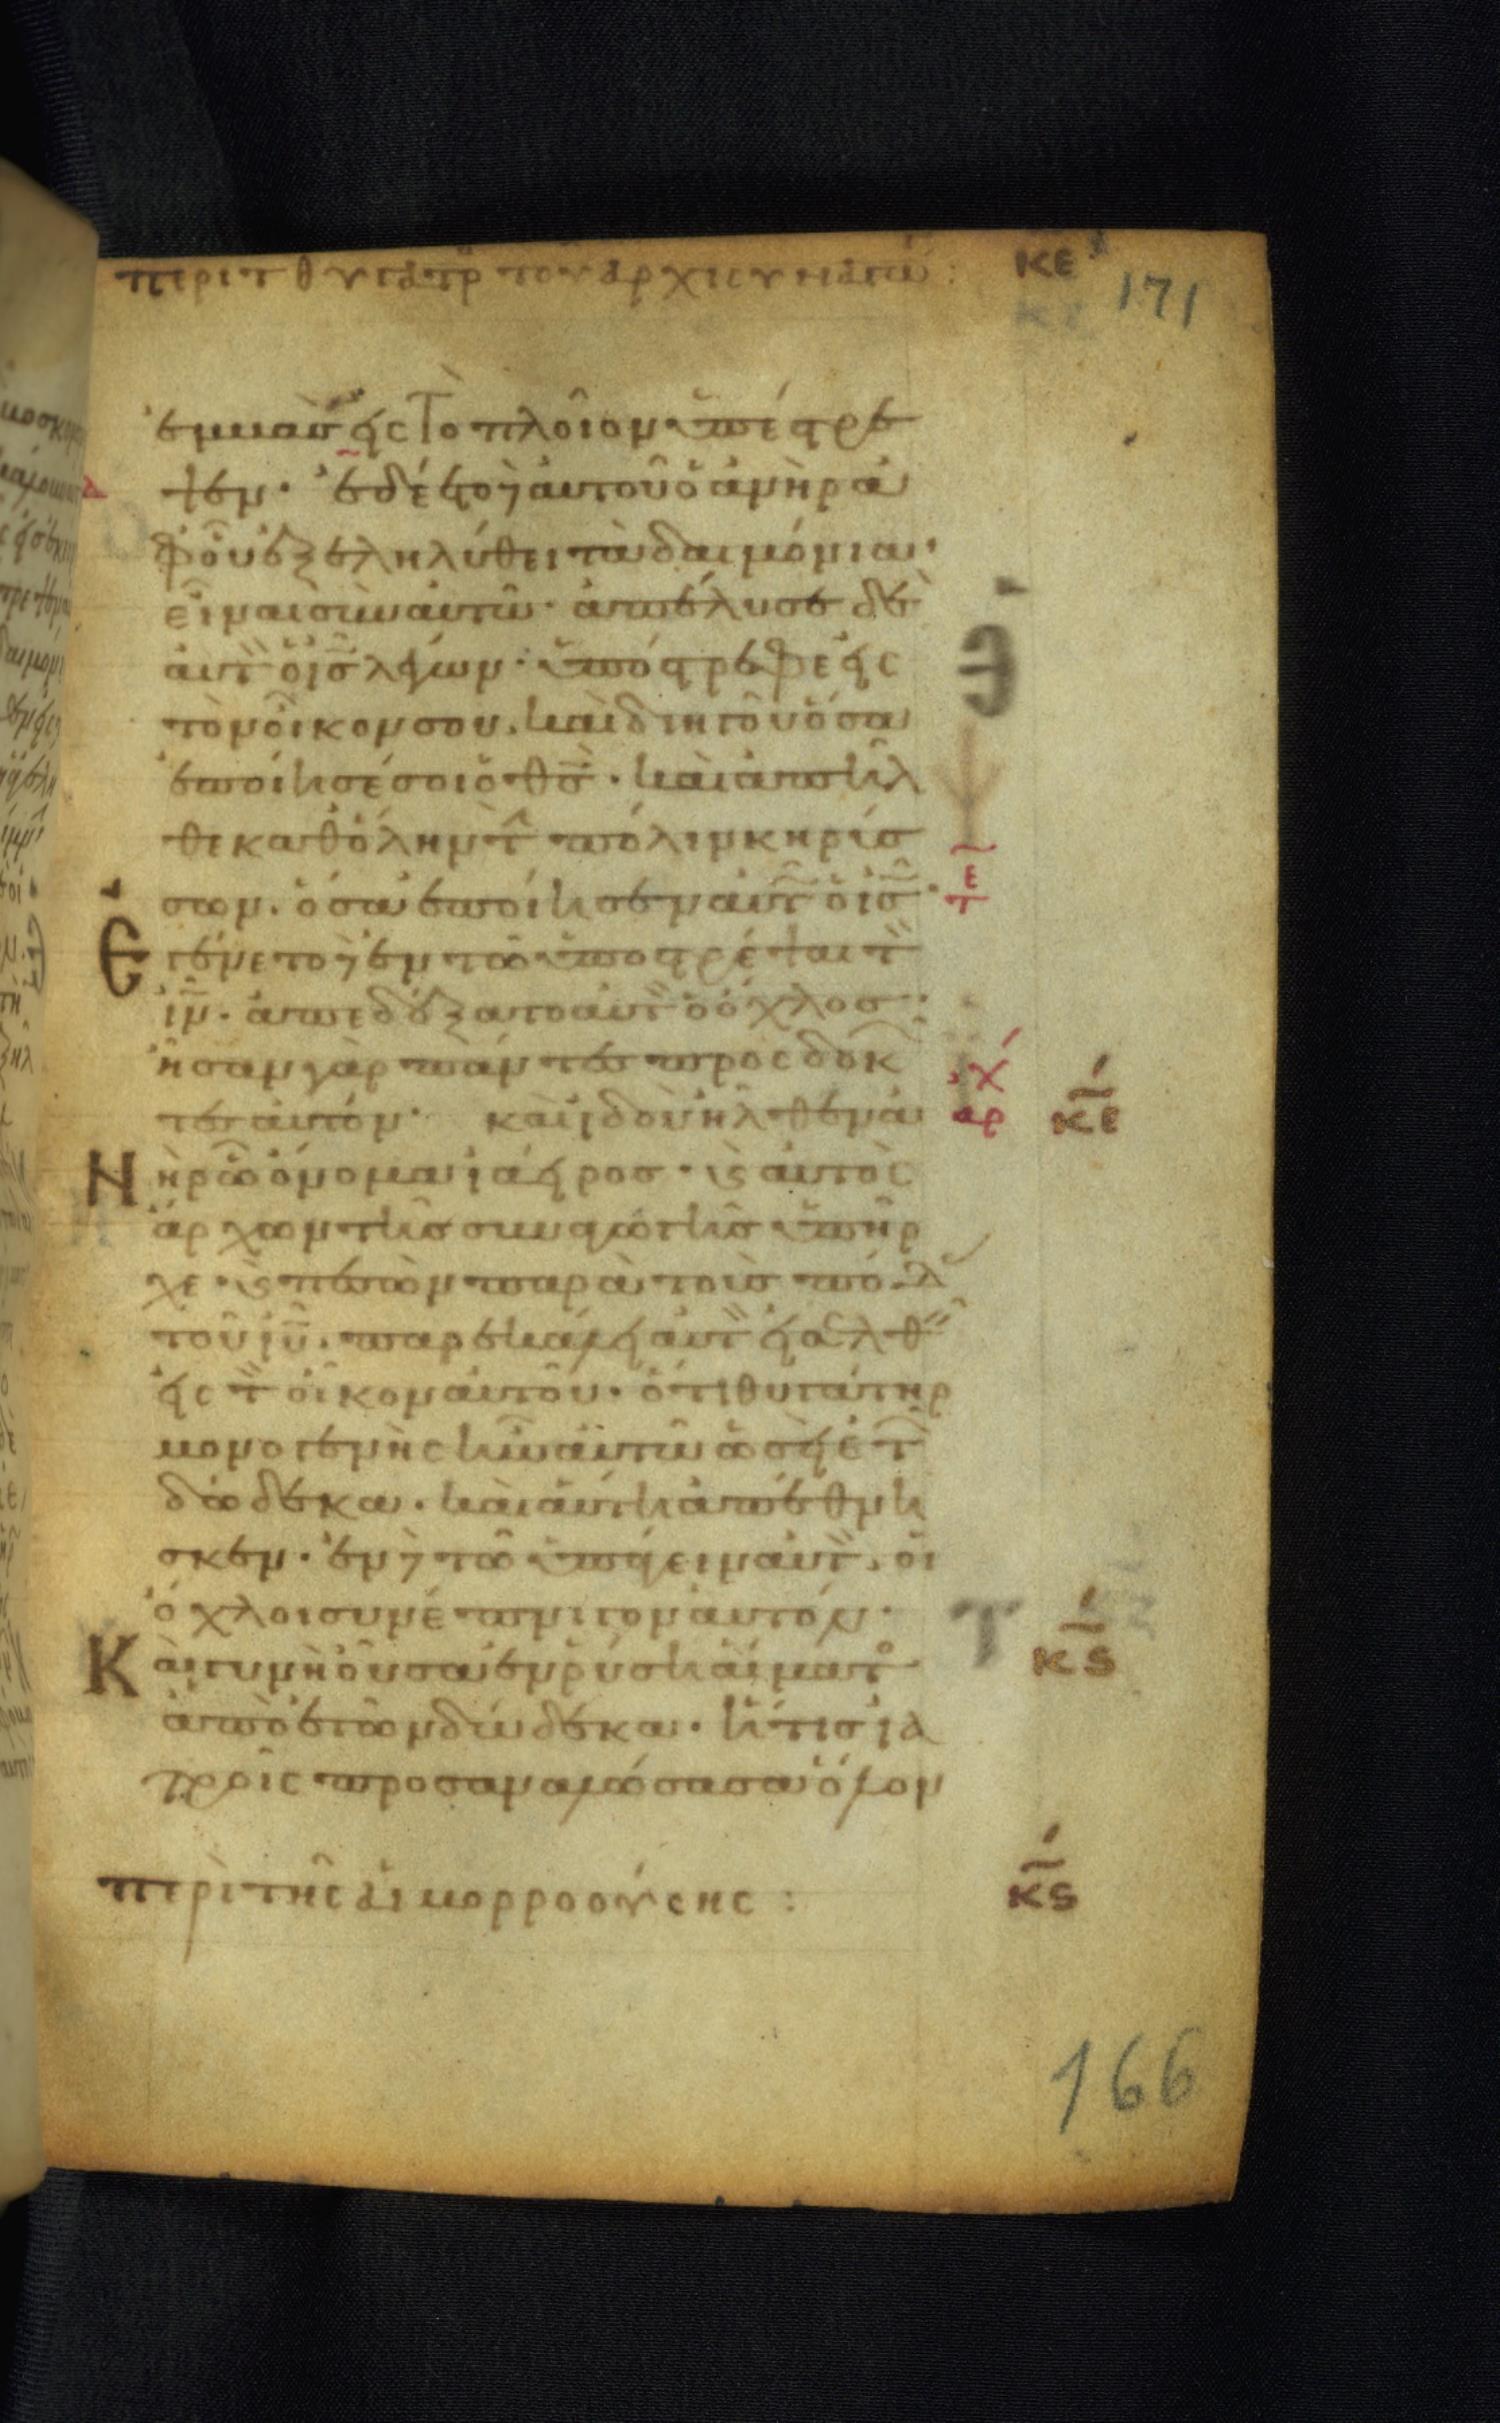 περι τ θυγατρ του αρχισυναγω : ΚΕ
171
ἐμβὰσ εἰς Τὸ πλοῖον ὑπέστρε
ψεν· ἐδέετο δὲ αὐτοῦ ὁ ἀνὴρ ἀ
φ' οὗ ἐξεληλύθει τὰ δαιμόνια·
εἶναι σὺν αὐτῶ· ἀπέλυσε δὲ
αὐτ ὁ ισ λέγων· ὑπόστρεφε εἰς
τὸν οἶκον σου. καὶ διηγοῦ ὅσα
ἐποίησέ σοι ὁ θσ· καὶ ἀπῆλ
θε καθ' ὅλην τ πόλιν κηρύσ
σων. ὅσα ἐποίησεν αὐτ ὁ ισ·
τε
Ἐγένετο δὲ ἐν τῶ ὑποστρέψαι τ
ιν. ἀπεδέξατο αὐτ ὁ ὄχλοσ·
ἦσαν γὰρ πάντεσ προσδοκ
αρχ
τεσ αὐτόν· καὶ ἰδοὺ ἦλθεν ἀ
ΚΕ
Νὴρ ὧ ὄνομα ἰάειροσ· κ αὐτὸς
ἄρχων τῆσ συναγωγῆσ ὑπῆρ
χε· κ πεσὼν παρὰ τοὺσ πόδ
τοῦ ιυ. παρεκάλει αὐτ εἰσελθ
εἰς τ οἶκον αὐτοῦ· ὅτι θυγάτηρ
μονογενὴς ἦν αὐτῶ ὡσεὶ ἐτ
δώδεκα. καὶ αὐτὴ ἀπέθνη
σκεν· ἐν δὲ τῶ ὑπάγειν αὐτ. οἱ
ὄχλοι συνέπνιγον αὐτόν·
Τ
ΚϚ
Καὶ γυνὴ οὖσα ἐν ῥύσει αἵματο
ἀπὸ ἐτῶν δώδεκα. ἥτισ ἰα
τροῖς προσαναλώσασα ὅλον
περὶ τῆς αἱμορροούσης : ΚϚ
166